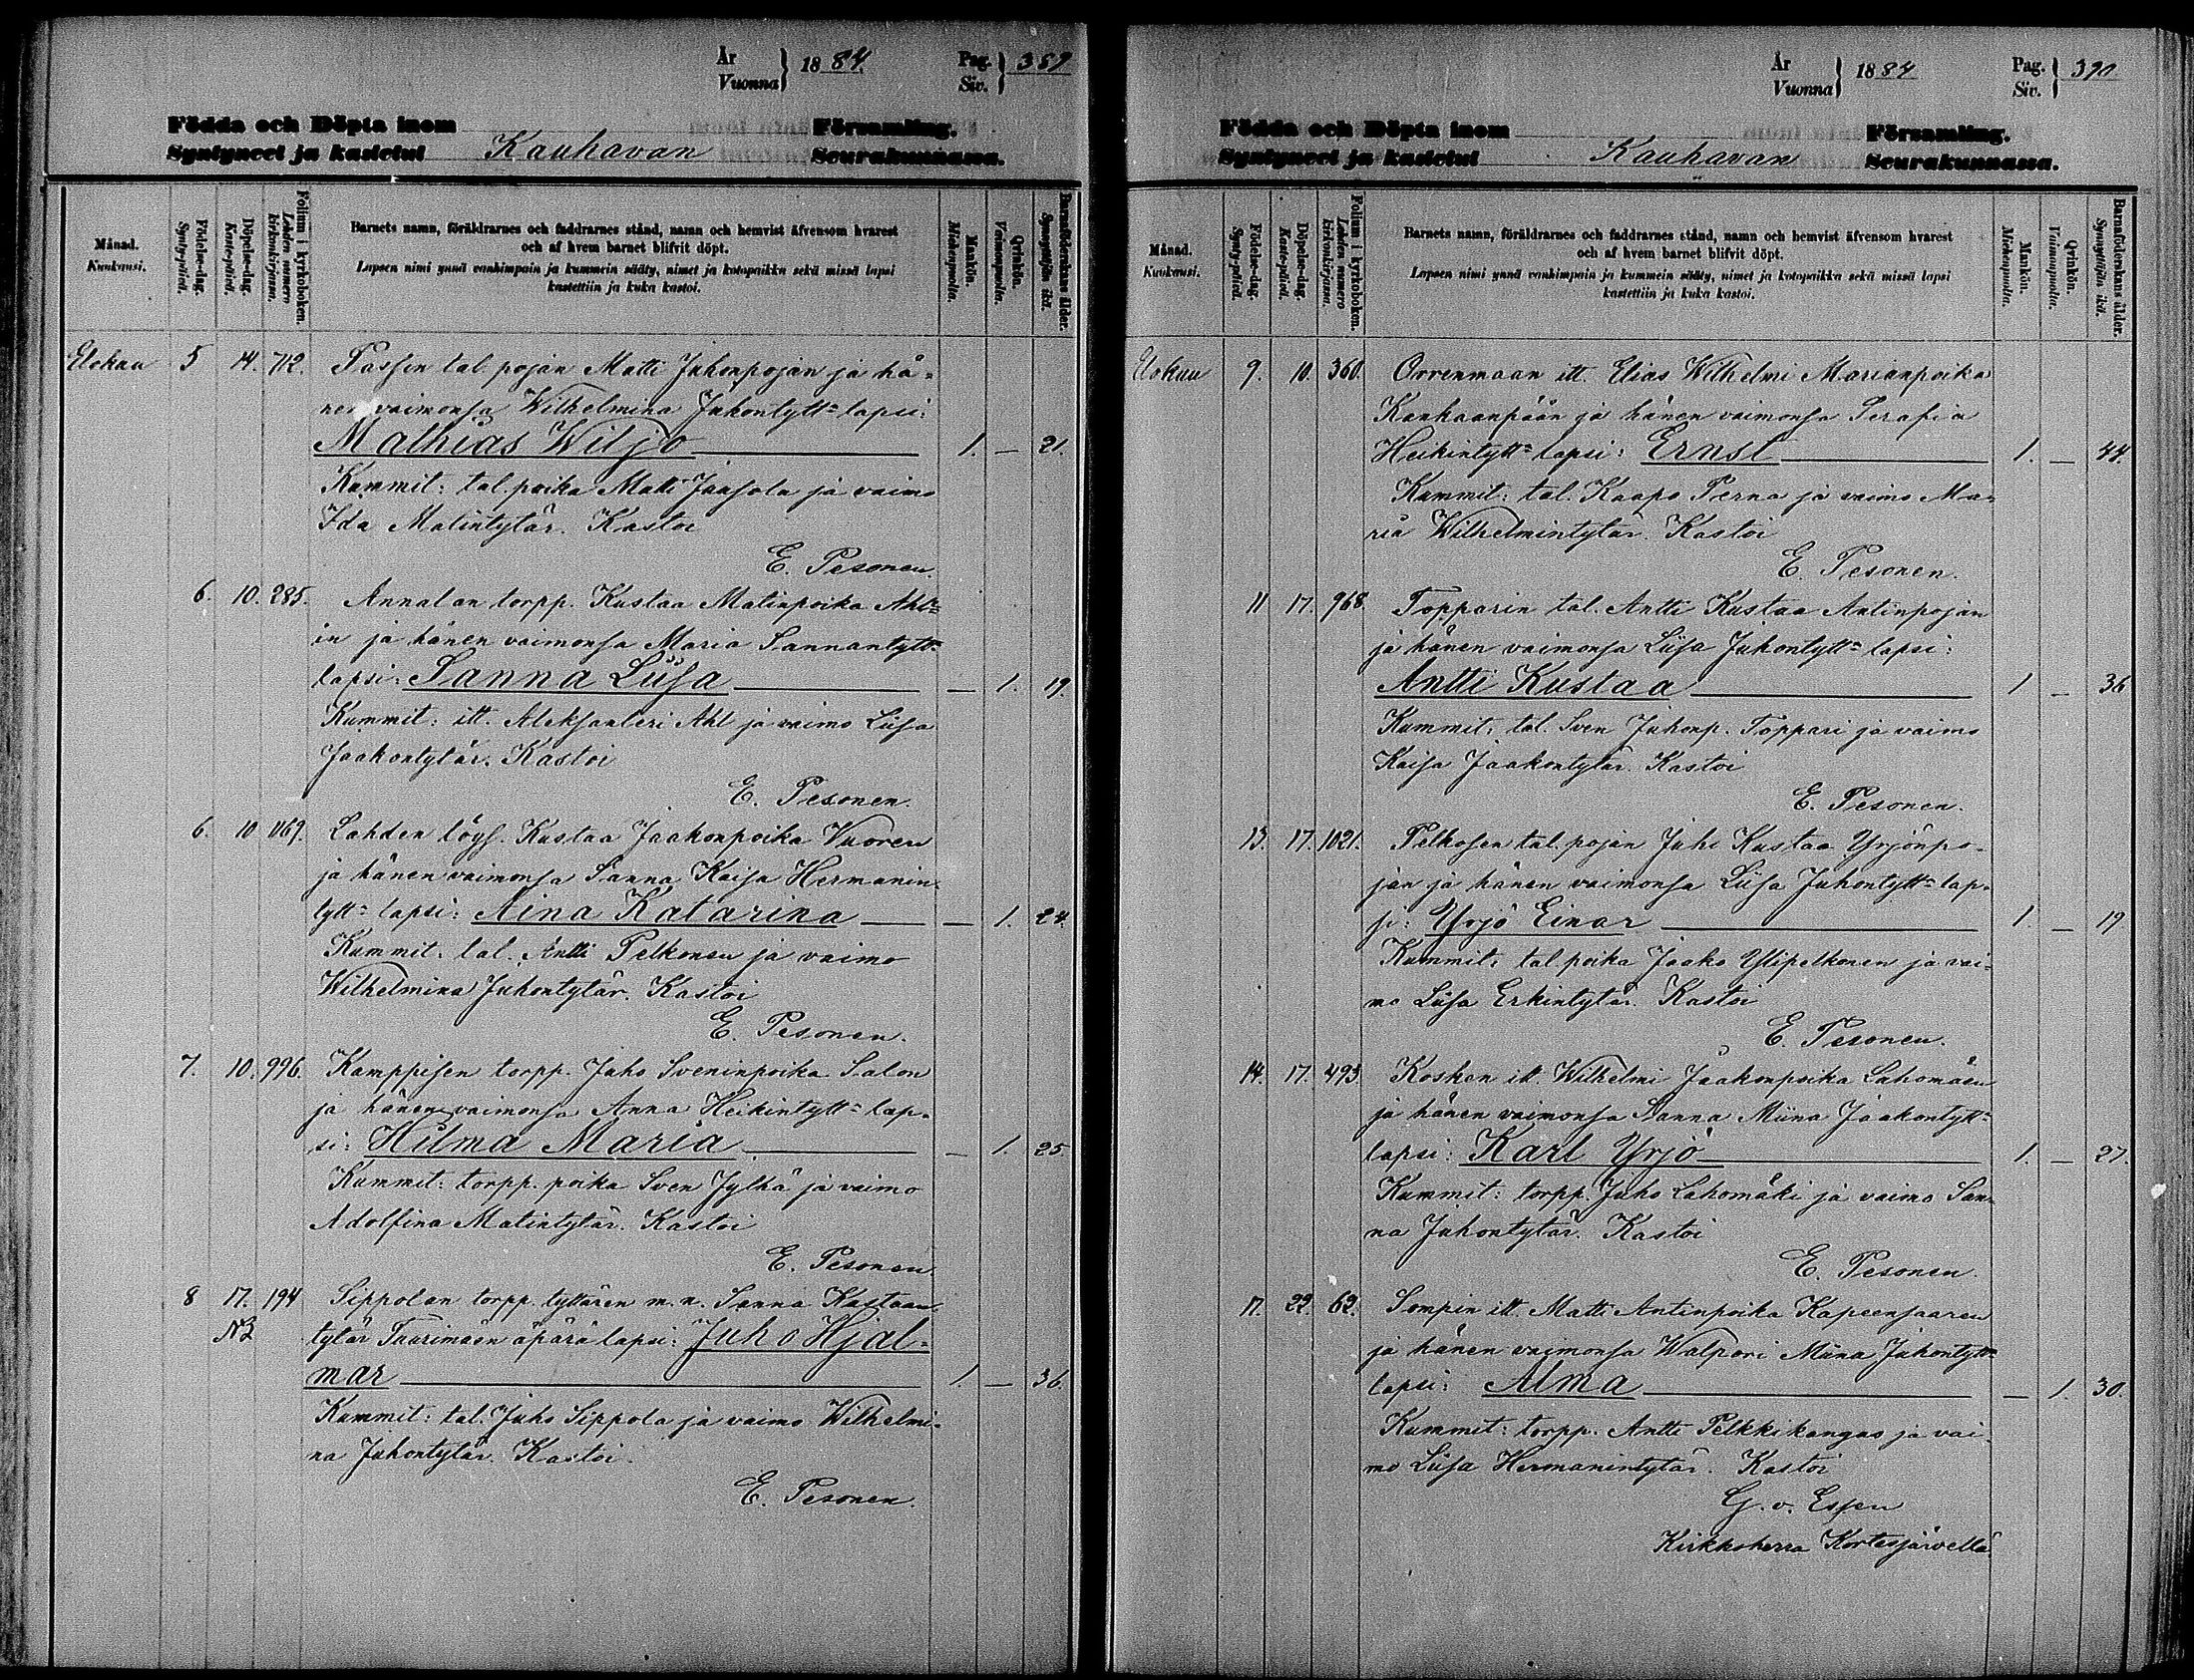 År
Vuonna } 1884. Pag.
Siv. } 389
Födda och Döpta inom Församling.
Syntyneet ja kastetut Kauhavan Seurakunnassa.
Månad.
Kuukausi.
Födelse-dag.
Synty-päivä.
Döpelse-dag.
Kaste-päivä.
Folium i kyrkoboken.
Lehden numero kirkonkirjassa.
Barnets namn, föräldrarnes och faddrarnes stånd, namn och hemvist äfvensom hvarest
och af hvem barnet blifvit döpt.
Lapsen nimi ynnä vanhimpain ja kummein sääty, nimet ja kotopaikka sekä missä lapsi
kastettiin ja kuka kastoi.
Mankön.
Miehenpuolta.
Qvinkön.
Vaimonpuolta.
Barnaföderskans ålder.
Synnyttäjän ikä.
Elokuu 5 14. 712. Passin tal. pojan Matti Juhonpojan ja hä-
nen vaimonsa Wilhelmina Juhontytt= lapsi:
Mathias Wiljo 1. — 21.
Kummit: tal. poika Matti Jaasola ja vaimo
Ida Matintytär. Kastoi
E. Pesonen.
6. 10. 285. Annalan torpp. Kustaa Matinpoika Ahl=
in ja hänen vaimonsa Maria Sannantytt=
lapsi: Sanna Liisa — 1. 19.
Kummit: itt. Aleksanteri Ahl ja vaimo Liisa
Jaakontytär. Kastoi
E. Pesonen.
6. 10 1169. Lahden löys. Kustaa Jaakonpoika Vuoren
ja hänen vaimonsa Sanna Kaisa Hermanin-
tytt= lapsi: Aina Katarina — 1. 24.
Kummit: tal. Antti Pelkonen ja vaimo
Wilhelmina Juhontytär. Kastoi
E. Pesonen.
7. 10. 996. Kamppisen torpp. Juho Sveninpoika Salon
ja hänen vaimonsa Anna Heikintytt= lap-
si: Hilma Maria — 1. 25
Kummit: torpp. poika Sven Jylhä ja vaimo
Adolfina Matintytär. Kastoi
E. Pesonen.
8 17. 194 Sippolan torpp. tyttären m. n. Sanna Kustaan
tytär Tuurimäen äpärä lapsi: Juho Hjal-
mar 1. — 36.
Kummit: tal. Juho Sippola ja vaimo Wilhelmi-
na Juhontytär. Kastoi
E. Pesonen.
År
Vuonna } 1884 Pag.
Siv. } 390
Födda och Döpta inom Församling.
Syntyneet ja kastetut Kauhavan Seurakunnassa.
Månad.
Kuukausi.
Födelse-dag.
Synty-päivä.
Döpelse-dag.
Kaste-päivä.
Folium i kyrkoboken.
Lehden numero kirkonkirjassa.
Barnets namn, föräldrarnes och faddrarnes stånd, namn och hemvist äfvensom hvarest
och af hvem barnet blifvit döpt.
Lapsen nimi ynnä vanhimpain ja kummein sääty, nimet ja kotopaikka sekä missä lapsi
kastettiin ja kuka kastoi.
Mankön.
Miehenpuolta.
Qvinkön.
Vaimonpuolta.
Barnaföderskans ålder.
Synnyttäjän ikä.
Elokuu 9. 10. 360. Orrenmaan itt. Elias Wilhelmi Marianpoika
Kankaanpään ja hänen vaimonsa Serafia
Heikintytt= lapsi: Ernst 1. — 44.
Kummit: tal. Kaapo Perna ja vaimo Ma-
ria Wilhelmintytär. Kastoi
E. Pesonen.
11 17. 968. Topparin tal. Antti Kustaa Antinpojan
ja hänen vaimonsa Liisa Juhontytt= lapsi:
Antti Kustaa 1 — 36
Kummit: tal. Sven Juhonp. Toppari ja vaimo
Kaisa Jaakontytär. Kastoi
E. Pesonen.
13. 17. 1021. Pelkosen tal. pojan Juho Kustaa Yrjönpo-
jan ja hänen vaimonsa Liisa Juhontytt= lap-
si: Yrjö Einar 1. — 19
Kummit: tal poika Jaako Ylipelkonen ja vai-
mo Liisa Erkintytär. Kastoi
E. Pesonen.
14. 17. 493. Kosken itt. Wilhelmi Jaakonpoika Lahomäen
ja hänen vaimonsa Sanna Miina Jaakontytt=
lapsi: Karl Yrjö 1. — 27.
Kummit: torpp. Juho Lahomäki ja vaimo San-
na Juhontytär. Kastoi
E. Pesonen.
17. 22. 62. Sompin itt. Matti Antinpoika Kapeensaaren
ja hänen vaimonsa Walpori Miina Juhontytt=
lapsi: Alma — 1. 30.
Kummit: torpp. Antti Pelkkikangas ja vai-
mo Liisa Hermanintytär. Kastoi
G. v. Essen
Kirkkoherra Kortesjärvellä.